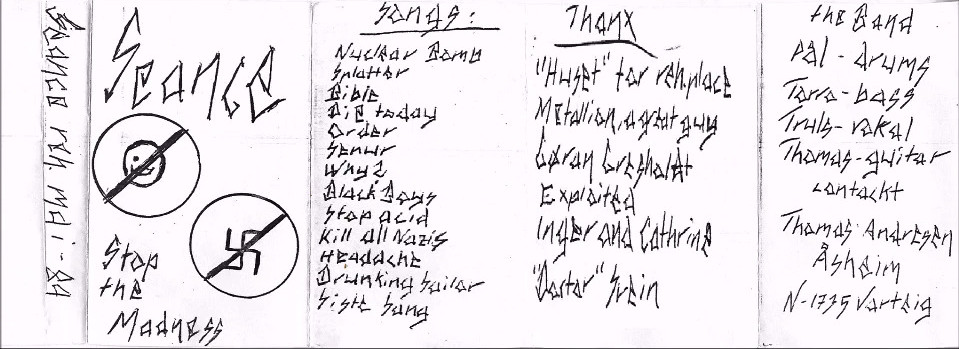 Seance reh. mai-89
Seance
Stop
the
Madness
Songs:
Nuclear Bomb
Splatter
Bible
Die today
Order
Senur
Why?
Black Boys
Stop acid
Kill all Nazis
Headache
Drunking Sailor
Siste Sang
Thanx
"Huset" for reh.place
Metallion, a great guy
Gøran Gresholdt
Exploited
Inger and Cathrine
"Doctor" Svein
the Band
Pål - drums
Torro - bass
Truls - vokal
Thomas - guitar
contackt
Thomas Andresen
Åsheim
N-1735 Varteig